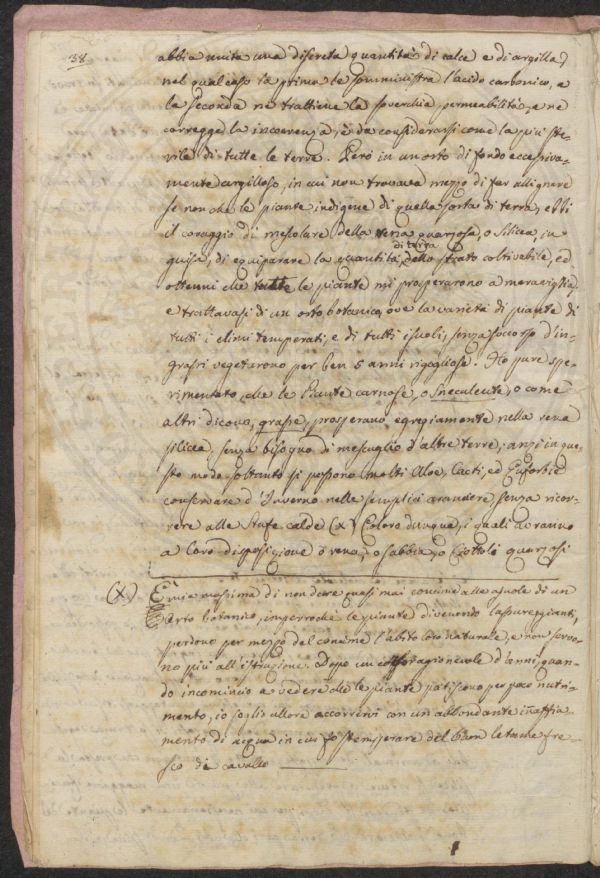 38
abbia unita una discreta quantità di calce e di argilla,
nel qual caso la prima le somministra l'acido carbonico, e
la seconda ne trattiene la soverchia permeabilità, e ne
corregge la incoerenza, è da considerarsi come la più ste-
rile di tutte le terre. Però in un orto di fondo eccessiva-
mente argilloso, in cui non trovava mezzo di far allignare
se non che le piante indigene di quella sorta di terra, ebbi
il coraggio di mescolare della terra quarzosa, o silicea, in
guisa, di equiparare la quantità dello strato coltivabile, ed
di terra
ottenni che tutte le piante mi prosperarono a maraviglia,
e trattavasi di un orto botanico, ove la varietà di piante di
tutti i climi temperati, e di tutti i suoli, senza soccorso d'in-
grassi vegetarono per ben 5 anni rigogliose. Ho pure spe-
rimentato, che le Piante carnose, o Succulente, o come
altri dicono, grasse, prosperano egregiamente nella rena
silicea, senza bisogno di mescuglio d'altre terre; anzi in que-
sto modo soltanto si possono molti Aloe, Cacti, ed Euforbie
conservare d'Inverno nelle semplici aranciere senza ricor-
rere alle Stufe calde (X) Coloro dunque, i quali avranno
a loro disposizione o rena, o sabbia, o Ciottoli quarzosi
(X) È mia massima di non dare quasi mai concime alle ajuole di un
Orto botanico, imperrochè le piante divenendo lussureggianti,
perdono per mezzo del concime l'abito loro naturale, e non servo-
no più all'istruzione. Dopo un corso ragionevole d'anni, quan-
do incomincio a vedere che le piante patiscono per poco nutri-
mento, io soglio allora accorrervi con un abbondante inaffia-
mento di acqua in cui fo stemperare del buon letame fre-
sco di cavallo